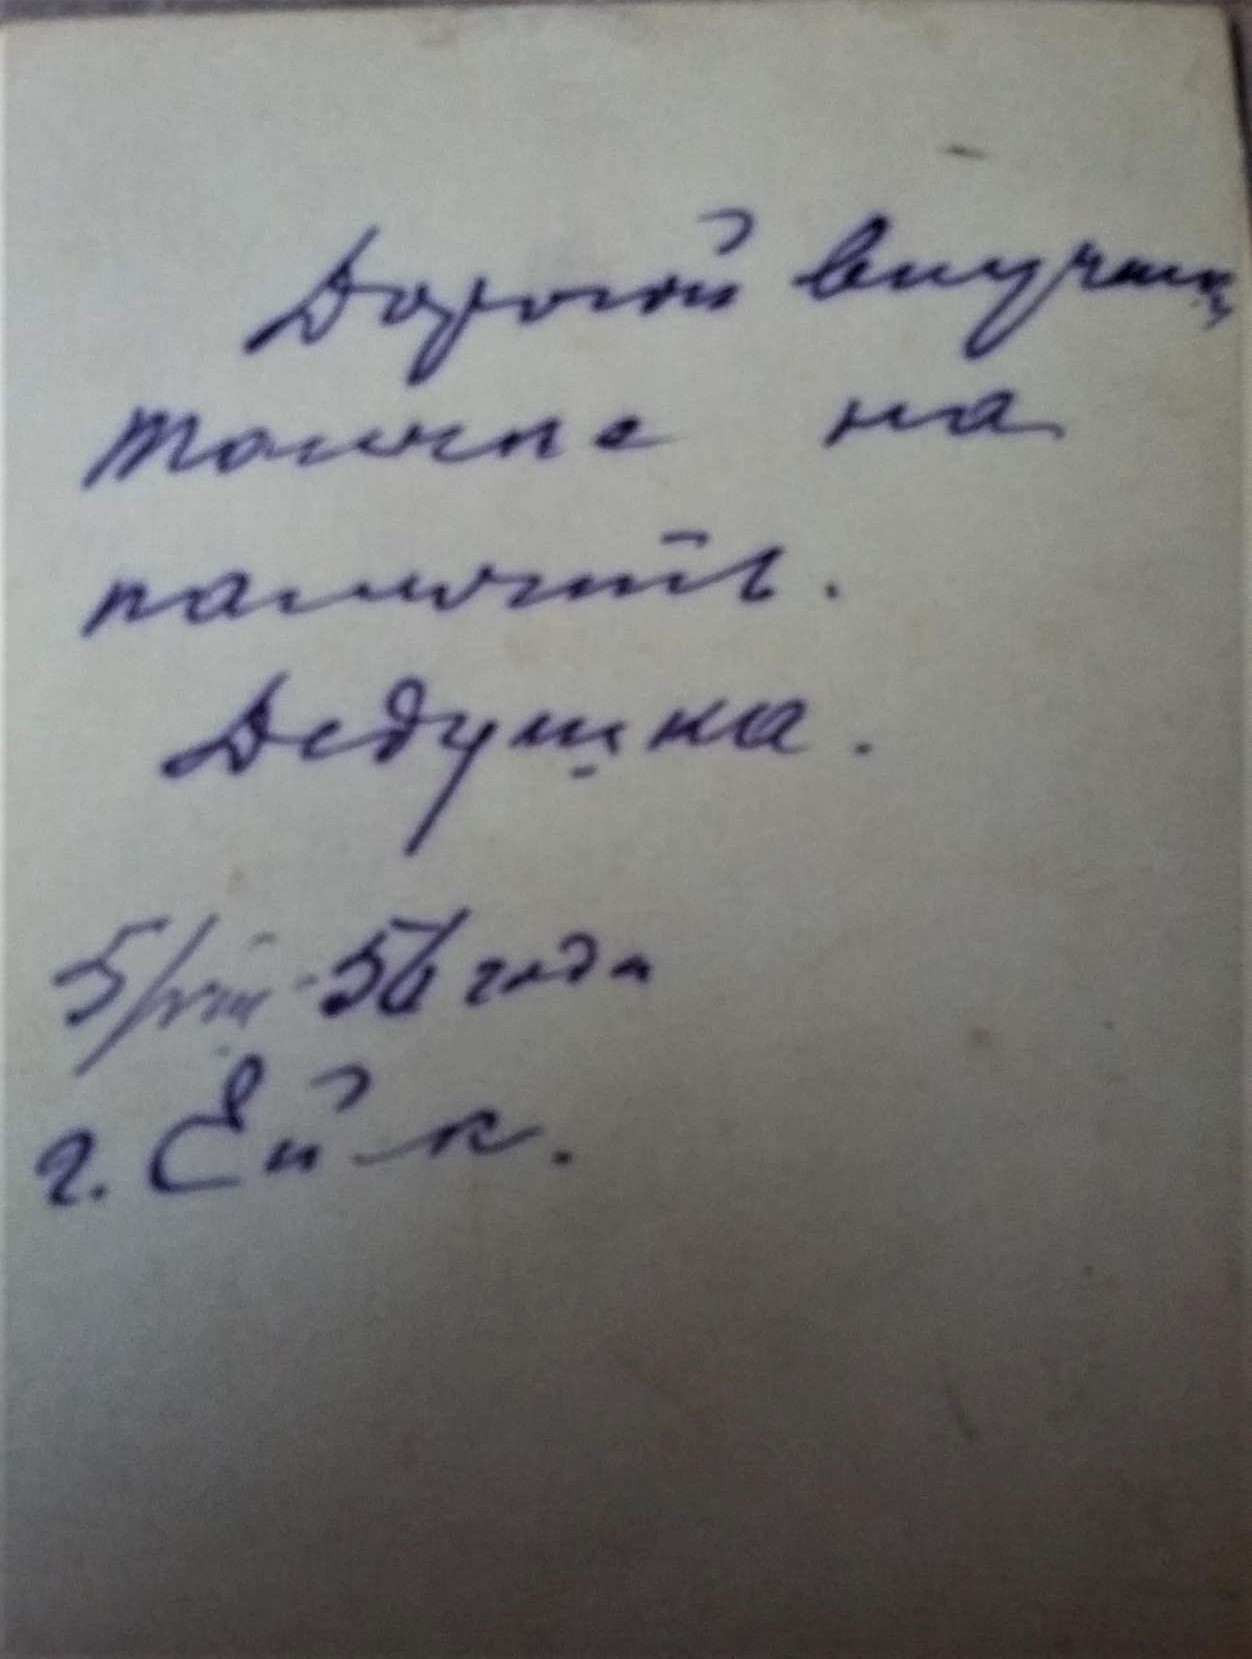 Дорогой внучки
Томочке на
память.
Дедушка.
5/VIII-56 года
г. Ейск.